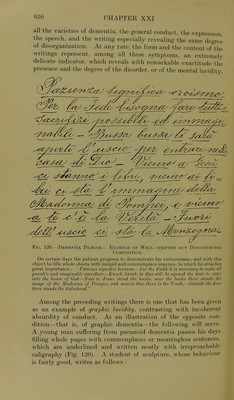 630 CHAPTER XXI
all the varieties of dementia, the general conduct, the expression,
the speech, and the writing especially revealing the same degree
of disorganization. At any rate, the form and content of the
writings represent, among all these symptoms, an extremely
delicate indicator, which reveals with remarkable exactitude the
presence and the degree of the disorder, or of the mental lucidity.
Pazienza significa eroismo
Per la Fede bisogna fare tutti i
Sacrifizi possibili ed immagi-
nabili — Bussa bussa ti sarà
aperto l'uscio per entrare nella
casa di Dio — Vicino a Gesù
ci stanno i libri, vicino ai li-
bri ci sta l'immagine della
Madonna di Pompei, e vicino
a te c'è la Verità — Fuori
dell'uscio ci stà la Menzogna
FIG. 120.—DEMENTIA PARANOIA: EXAMPLE OF WELL-WRITTEN BUT DISCONNECTED
COMPOSITION.
On certain days the patient proposes to demonstrate his virtuousness, and with this
object he fills whole sheets with inspired and commonplace maxims, to which he attaches
great importance:—" Patience signifies heroism—For the Faith it is necessary to make all
possible and imaginable sacrifices—Knock, knock and it will be opened the door to enter
into the house of God—Near to Jesus there are the books, near the books there is the
image of the Madonna of Pompei, and near to thee there is the Truth,—Outside the door
there stands the Falsehood."
Among the preceding writings there is one that has been given
as an example of graphic lucidity, contrasting with incoherent
absurdity of conduct. As an illustration of the opposite con-
dition—that is, of graphic dementia—the following will serve.
A young man suffering from paranoid dementia passes his days
filling whole pages with commonplaces or meaningless sentences,
which are underlined and written neatly with irreproachable
caligraphy (Fig. 120). A student of sculpture, whose behaviour
is fairly good, writes as follows :